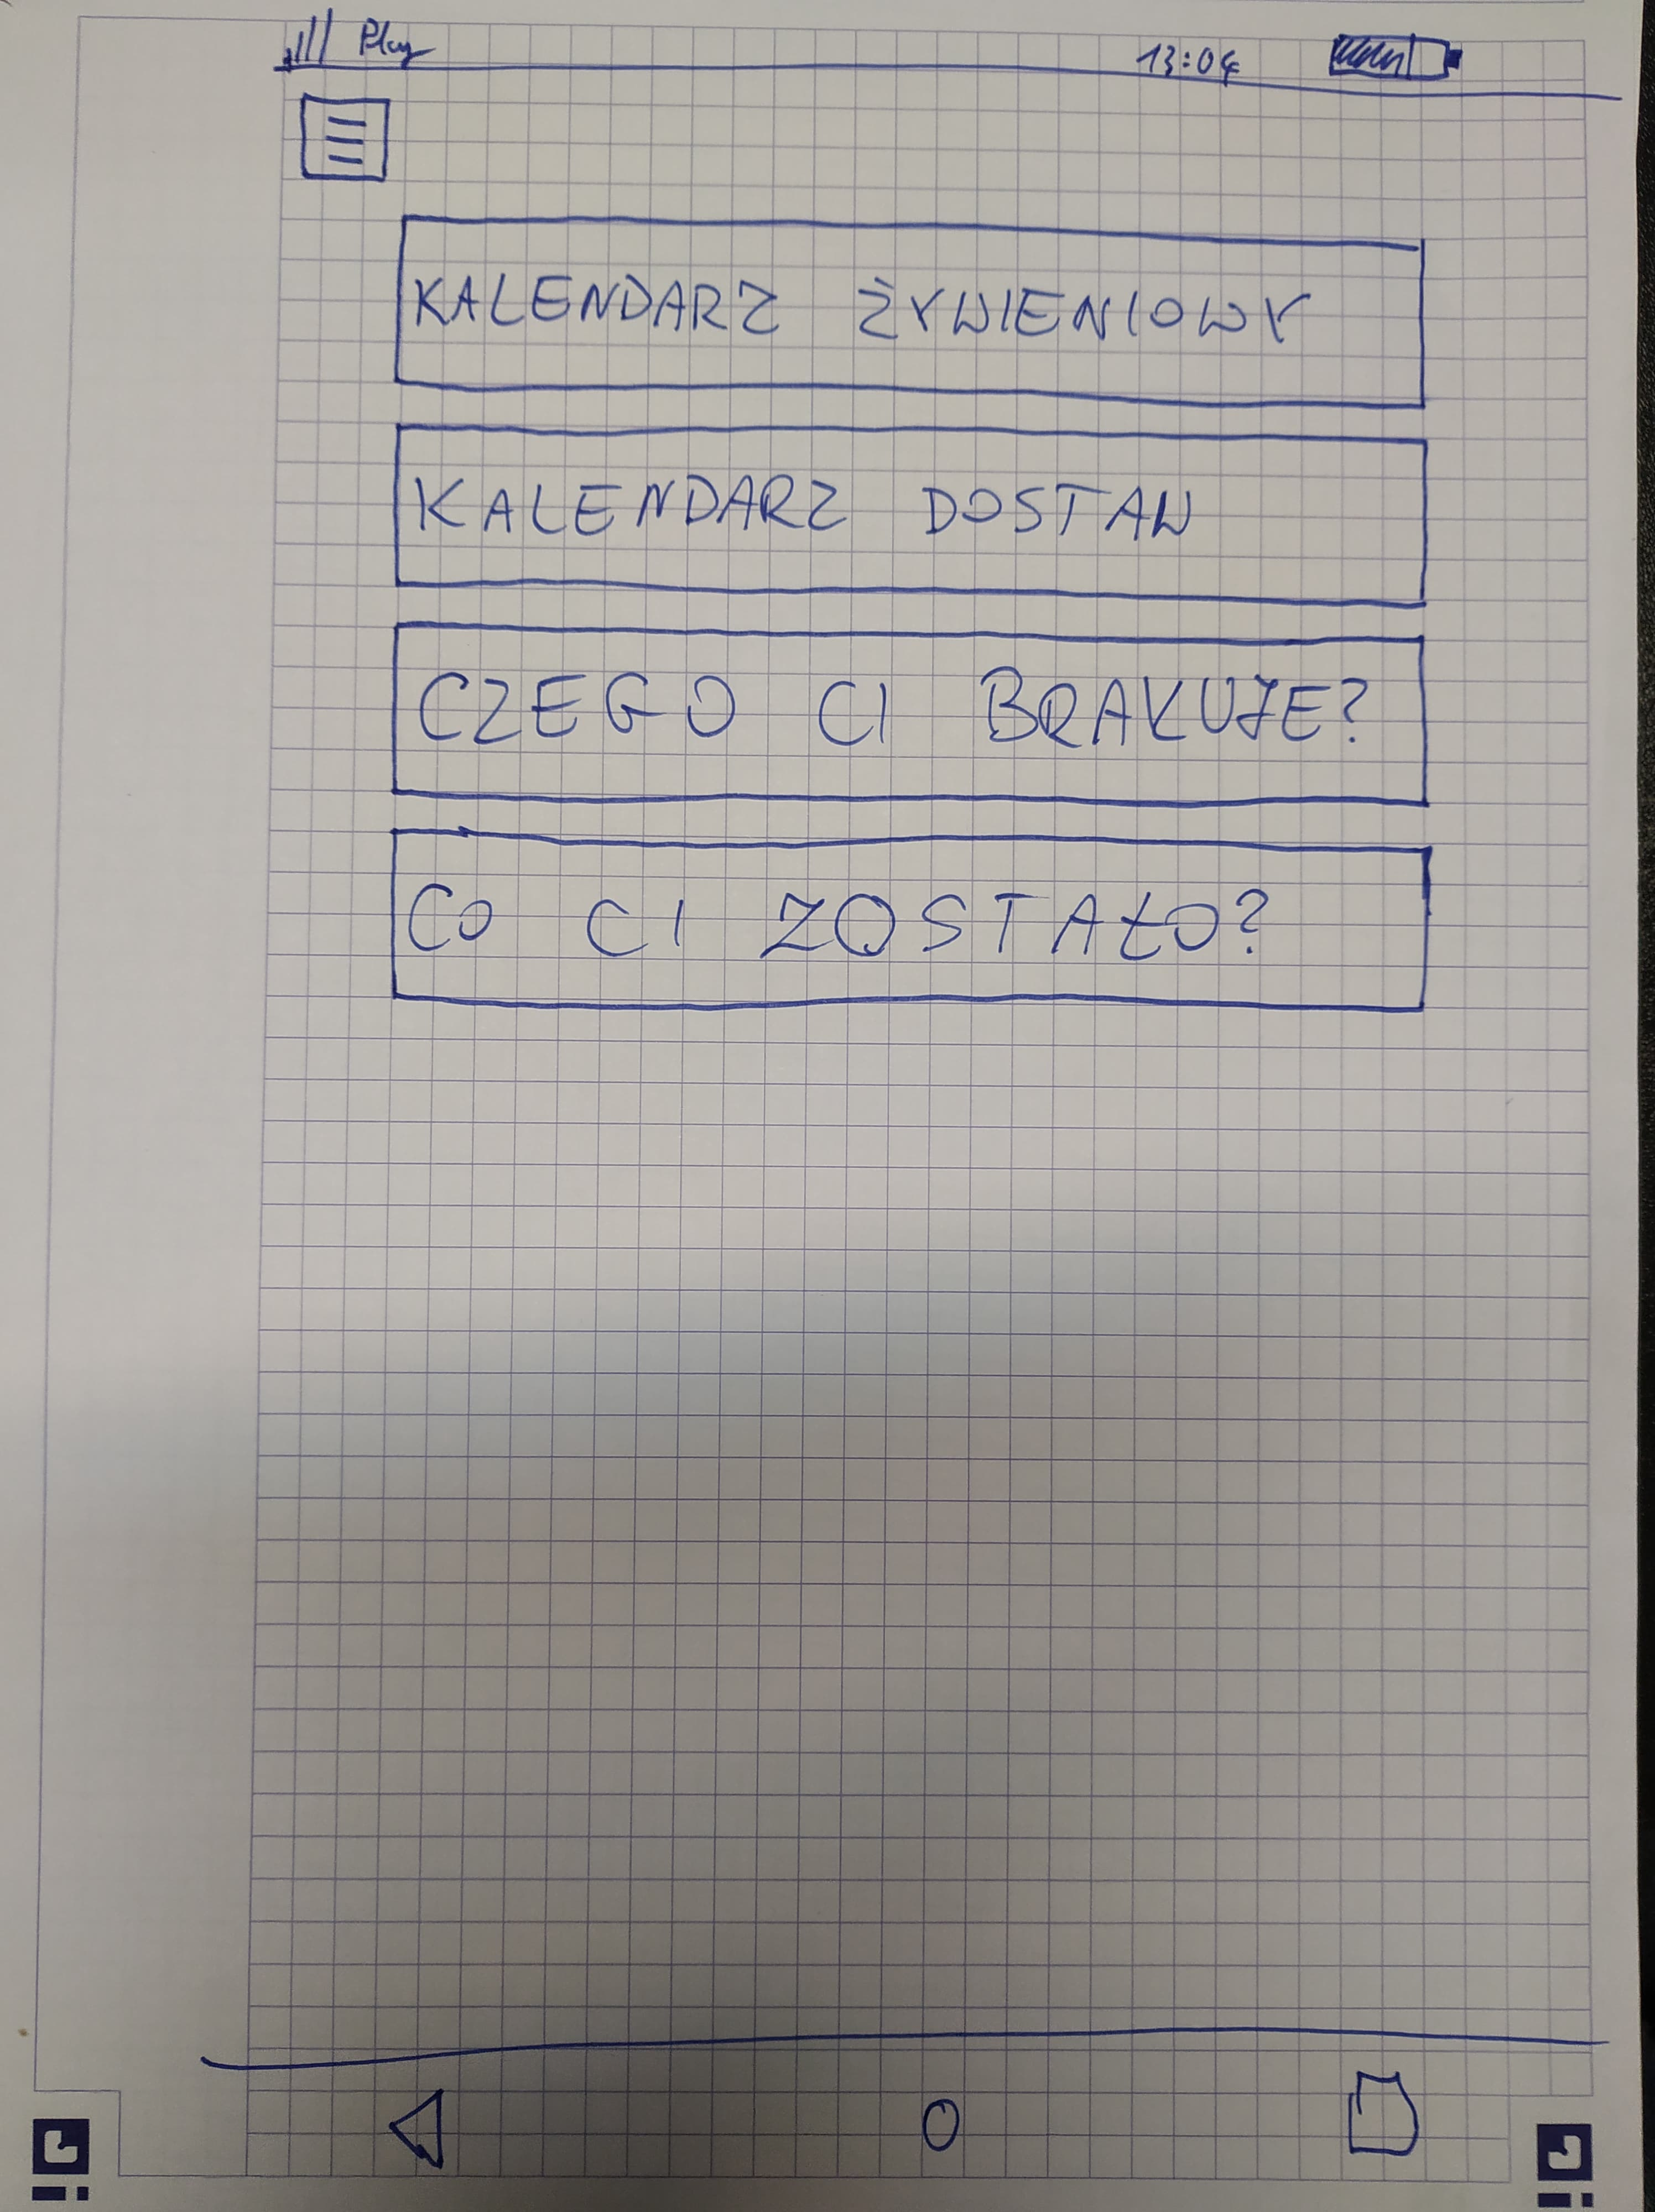 Play 13:04
KALENDARZ ŻYWIENIOWY
KALENDARZ DOSTAW
CZEGO CI BRAKUJE?
CO CI ZOSTAŁO?